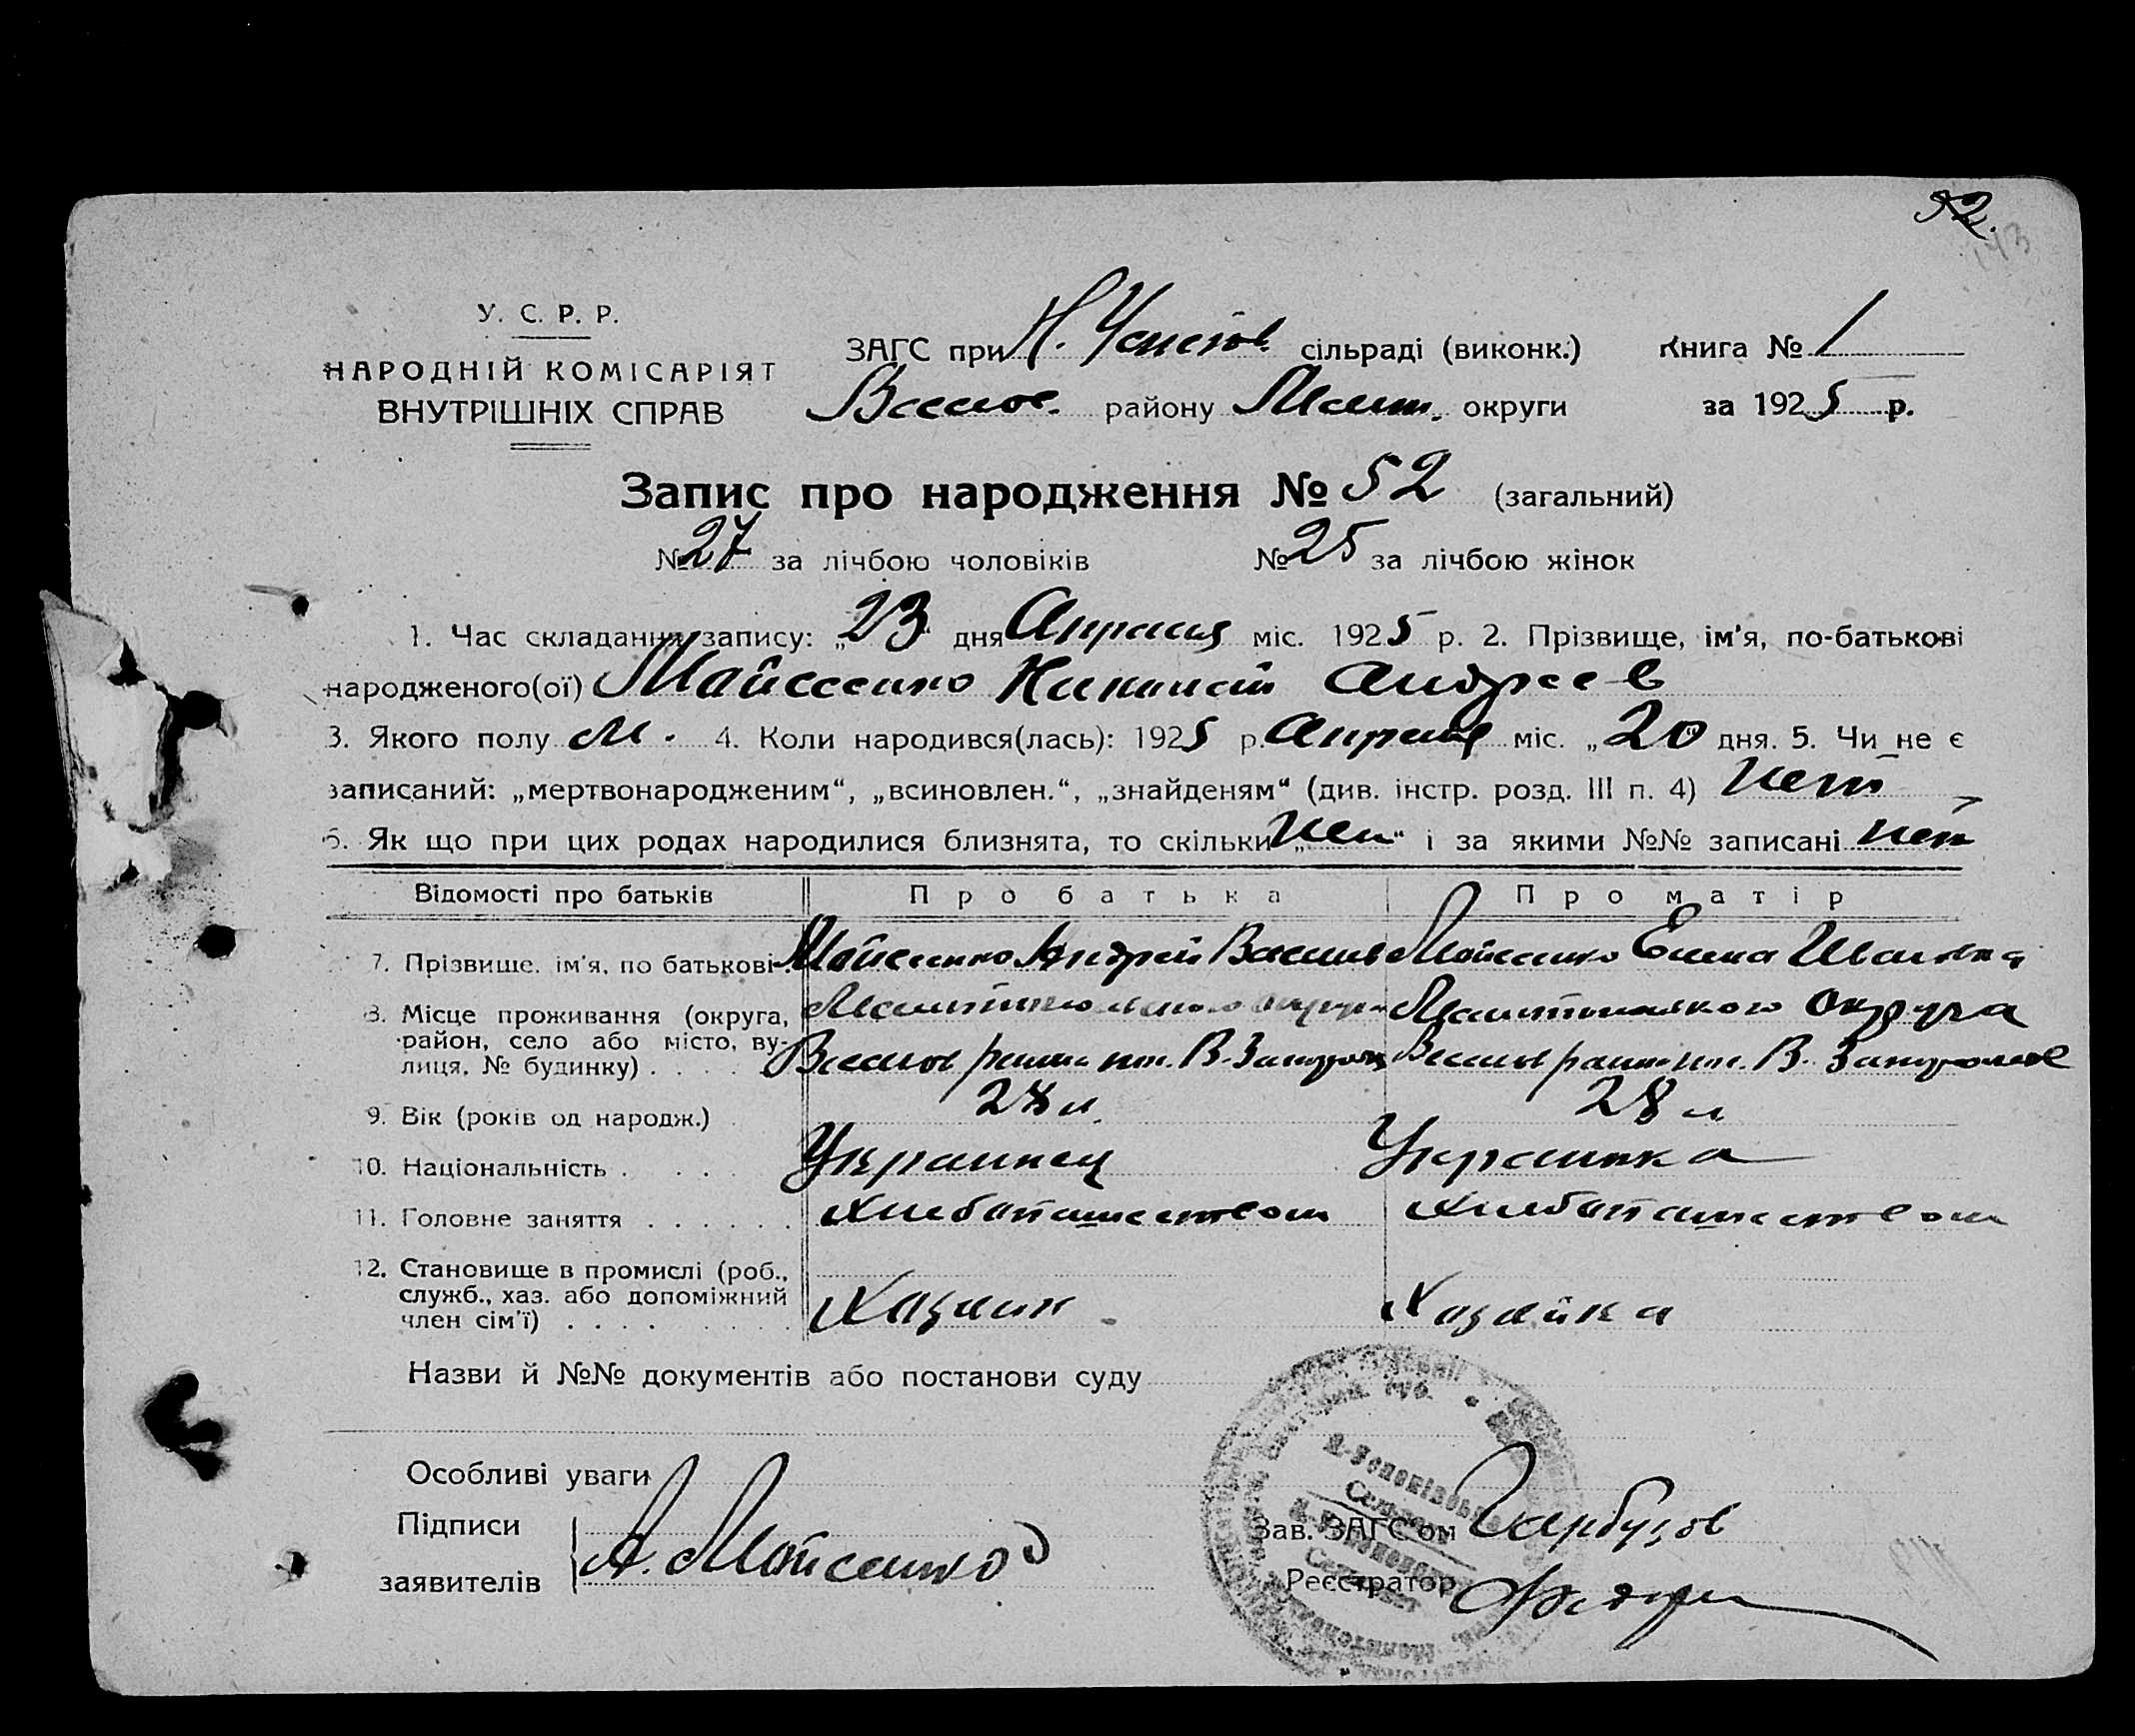 52.
У. С. Р. Р.
НАРОДНІЙ КОМІСАРІЯТ
ВНУТРІШНІХ СПРАВ
ЗАГС при Н. сільраді (виконк.) Книга № 1
Весело. району Мелит. округи за 1925 р.
Запис про народження № 52 (загальний)
№ 27 за лічбою чоловіків № 25 за лічбою жінок
1. Час складання запису: „23“ дня Апреля міс. 1925 р. 2. Прізвище, ім'я, по-батькові
народженого(ої) Мойсеенко Андреев
3. Якого полу М. 4. Коли народився(лась): 1925 р. Апреля міс. „20 дня. 5. Чи не є
записаний: „мертвонародженим“, „всиновлен.“, „знайденям“ (див. інстр. розд. III п. 4) нет
6. Як що при цих родах народилися близнята, то скільки „нет“ і за якими №№ записані нет
Відомості про батьків Про батька Про матір
7. Прізвище, ім'я, по батькові Мойсеенко Андрей Васильев Мойсеенко Елена
8. Місце проживання (округа, Мелитопольского округа Мелитопольского Округа
район, село або місто, ву-
лиця, № будинку) . . . . Веселов района В. Веселов района В.
9. Вік (років од народж.) 28 л
10. Національність . . . Украинец Украинка
11. Головне заняття . . . . . . Хлебопашеством Хлебопашеством
12. Становище в промислі (роб.,
служб., хаз. або допоміжний
член сім'ї) . . . . . . . . Хазяин Хазяйка
Назви й №№ документів або постанови суду
Особливі уваги
Підписи
заявителів А. Мойсеенко
Зав. ЗАГС'ом Гарбузов
Реєстратор